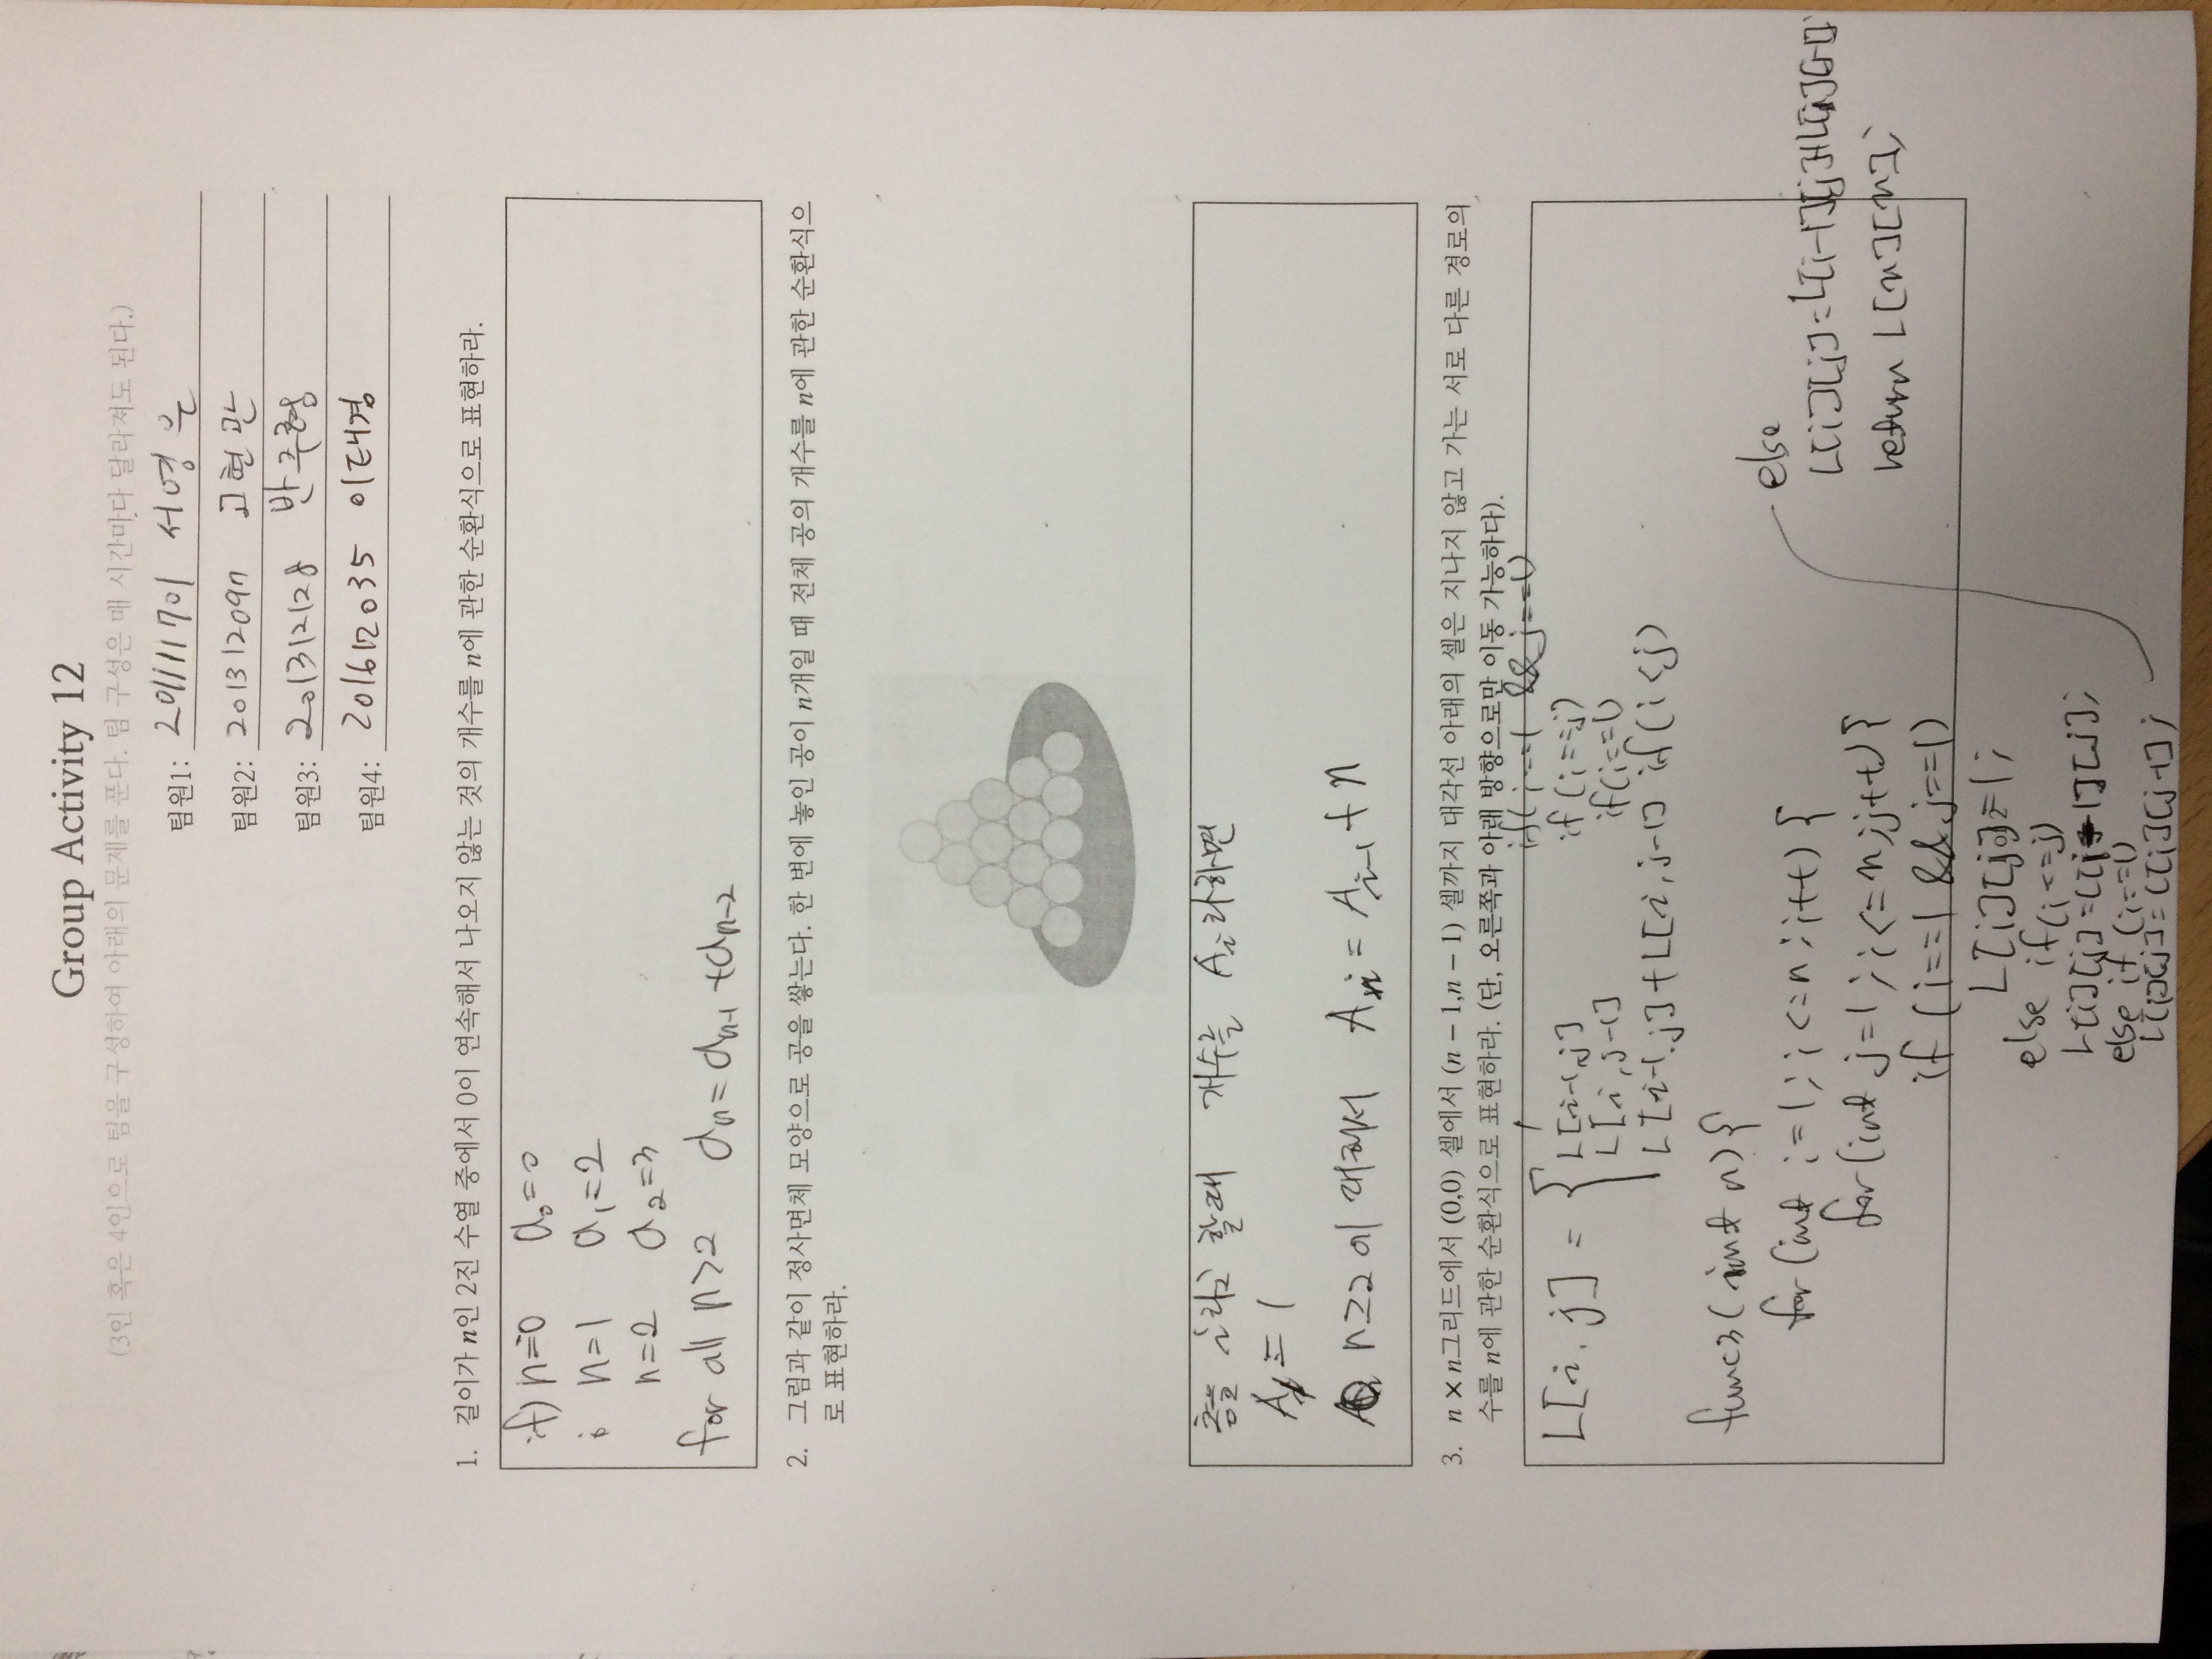 Group Activity 12
(3인 혹은 4인으로 팀을 구성하여 아래의 문제를 푼다. 팀 구성은 매 시간마다 달라져도 된다.)
팀원1: 201111701 서영은
팀원2: 201312097 고현관
팀원3: 201312128 반주형
팀원4: 201612035 이태경
1. 길이가 n인 2진 수열 중에서 0이 연속해서 나오지 않는 것의 개수를 n에 관한 순환식으로 표현하라.
if) n=0 a₀=0
n=1 a₁=2
n=2 a₂=3
for all n>2 aₙ=aₙ₋₁+aₙ₋₂
2. 그림과 같이 정사면체 모양으로 공을 쌓는다. 한 변에 놓인 공이 n개일 때 전체 공의 개수를 n에 관한 순환식으
로 표현하라.
층을 i라고 할때 개수를 Aᵢ라하면
A₁=1
n≥2에 대해서 Aᵢ=Aᵢ₋₁+n
3. n×n그리드에서 (0,0) 셀에서 (n−1,n−1) 셀까지 대각선 아래의 셀은 지나지 않고 가는 서로 다른 경로의
수를 n에 관한 순환식으로 표현하라. (단, 오른쪽과 아래 방향으로만 이동 가능하다).
1 if(i==1 && j==1)
L[i,j] = { L[i-1,j] if(i==j)
L[i,j-1] if(i==1)
L[i-1,j]+L[i,j-1] if(i<j)
func3(int n){
for(int i=1;i<=n;i++){
for(int j=1;i<=n;j++){
if (i==1 && j==1)
L[i][j]=1;
else if(i<=j)
L[i][j]=L[i-1][j];
else if (i==1)
L[i][j]=L[i][j-1];
else
L[i][j]=L[i-1][j]+L[i][j-1];
return L[n][n];